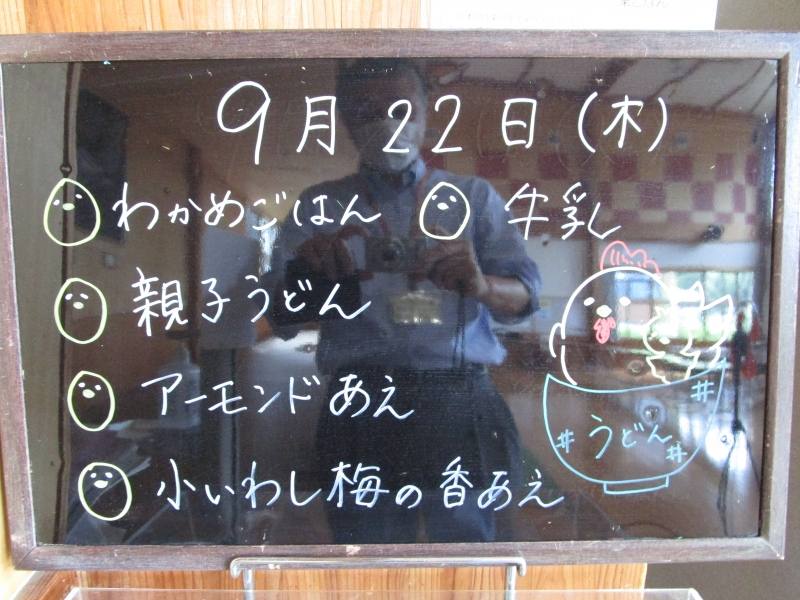 9月22日(木)
わかめごはん 牛乳
親子うどん
アーモンドあえ
小いわし梅の香あえ
うどん